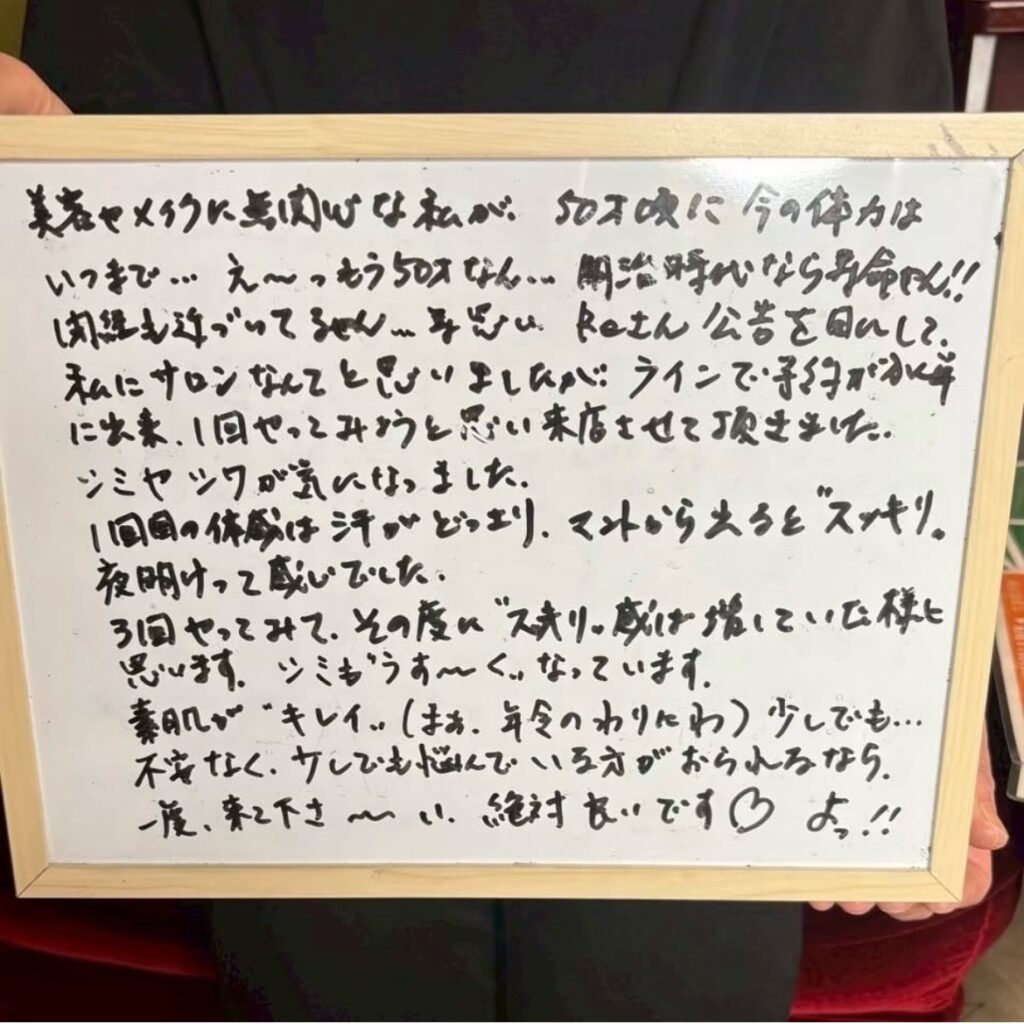 美容やメイクに無関心な私が、50才頃に今の体力は
いつまで… え〜っもう50才なん… 明治時代なら寿命やん!!
閉経も近づいてるやん… 等思い Reさん 公告を目にして、
私にサロンなんてと思いましたが、ラインで予約が簡単
に出来、1回やってみようと思い来店させて頂きました。
シミやシワが気になっました。
1回目の体感は汗がどっさり、マントから出ると"スッキリ。
夜明けって感じでした。
3回やってみて、その度に"スッキリ。感は増していた様に
思います。シミも"うす〜く〟なっています。
素肌が"キレイ〟(まぁ、年令のわりにわ) 少しでも…
不安なく、少しでも悩んでいる方がおられるなら、
一度、来て下さ〜い、絶対良いです♡ よっ!!